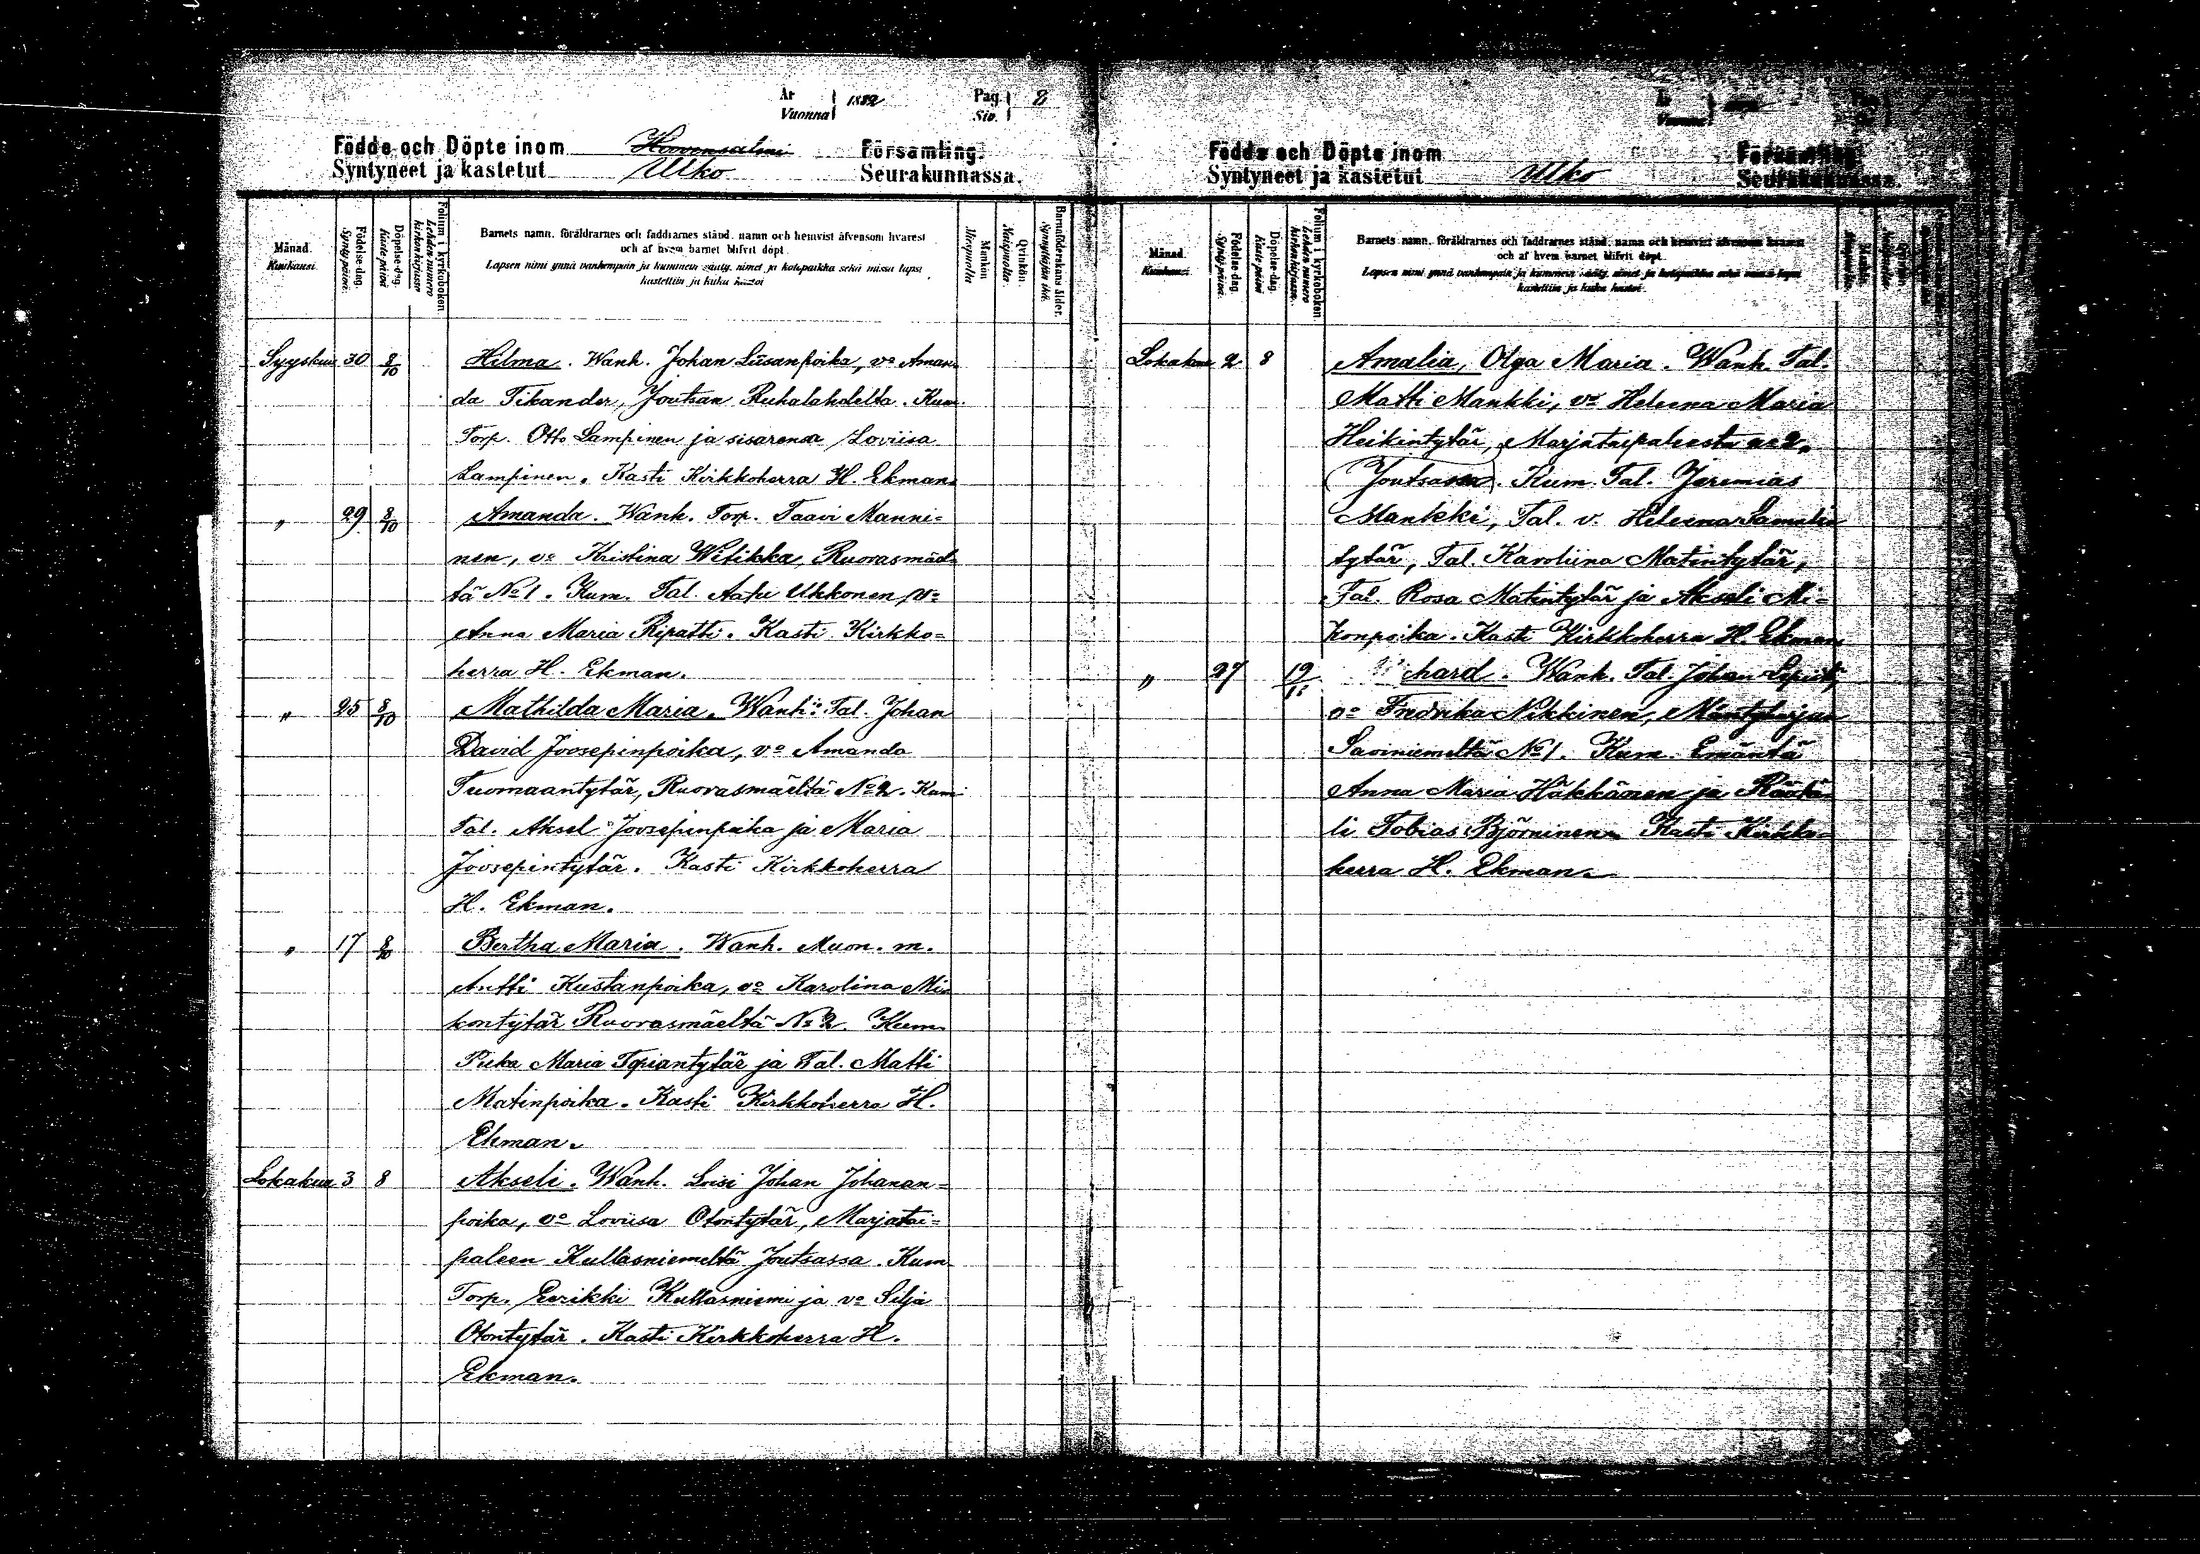 År Vuonna 1882 Pag. Siv. 8
Födde och Döpte inom Hirvensalmi Församling.
Syntyneet ja kastetut Ulko Seurakunnassa.
Månad. Kuukausi.
Födelse-dag. Syntypäivä.
Döpelse-dag. Kastepäivä
Folium i kyrkoboken. Lehden numero kirkonkirjassa
Barnets namn, föräldrarnes och faddrarnes stånd, namn och hemvist äfvensom hvarest
och af hvem barnet blifvit döpt.
Lapsen nimi ynnä vanhempain ja kummein sääty, nimet ja kotipaikka sekä missä lapsi
kastettiin ja kuka kastoi
Mankön. Miespuolia
Qvinkön. Naispuolia.
Barnaföderskans ålder. Synnyttäjän ikä.
Syyskuu 30 8/10 Hilma. Wanh. Johan Liisanpoika, vo Aman
da Tikander, Joutsan Ruhalahdelta. Kum.
Torp. Otto Lampinen ja sisarensa Loviisa
Lampinen. Kasti Kirkkoherra H. Ekman
" 29 8/10 Amanda. Wanh. Torp. Taavi Manni=
nen, vo Kristina Witikka, Ruorasmäel
tä No 1. Kum. Tal. Aatu Ukkonen, vo
Anna Maria Ripatti. Kasti Kirkko=
herra H. Ekman.
" 25 8/10 Mathilda Maria. Wanh: Tal. Johan
David Joosepinpoika, vo Amanda
Tuomaantytär, Ruorasmäeltä No 2. Kum
Tal. Aksel Joosepinpoika ja Maria
Joosepintytär. Kasti Kirkkoherra
H. Ekman.
" 17 8/10 Bertha Maria. Wanh. Muon. m.
Antti Kustanpoika, vo Karolina Mi
kontytär Ruorasmäeltä No 2. Kum
Piika Maria Topiantytär ja Tal. Matti
Matinpoika. Kasti Kirkkoherra H.
Ekman.
Lokakuu 3 8 Akseli. Wanh. Loisi Johan Johanan=
poika, vo Loviisa Otontytär, Marjatai=
paleen Kullasniemeltä Joutsassa. Kum
Torp. Eerikki Kullasniemi ja vo Silja
Otontytär. Kasti Kirkkoherra H.
Ekman.
Födde och Döpte inom Församling.
Syntyneet ja kastetut Ulko Seurakunnassa.
Månad. Kuukausi.
Födelse-dag. Syntypäivä.
Döpelse-dag. Kastepäivä
Folium i kyrkoboken. Lehden numero kirkonkirjassa.
Barnets namn, föräldrarnes och faddrarnes stånd, namn och hemvist äfvensom hvarest
och af hvem barnet blifvit döpt.
Lapsen nimi ynnä vanhempain ja kummein sääty, nimet ja kotipaikka sekä missä lapsi
kastettiin ja kuka kastoi.
Lokakuu 2 8 Amalia, Olga Maria. Wanh. Tal.
Matti Mankki, vo Heleena Maria
Heikintytär, Marjataipaleesta no 2.
(Joutsassa). Kum. Tal. Jeremias
Mankki, Tal. v. Heleena Samulin
tytär, Tal. Karoliina Matintytär,
Tal. Rosa Matintytär ja Akseli Mi=
konpoika. Kasti Kirkkoherra H. Ekman
" 27 hard. Wanh. Tal. Johan
vo Fredrika Nikkinen, Mäntyharjun
Saviniemeltä No 1. Kum. Emäntä
Anna Maria Häkkänen ja Räätä
li Tobias Björninen. Kasti Kirkko=
herra H. Ekman.